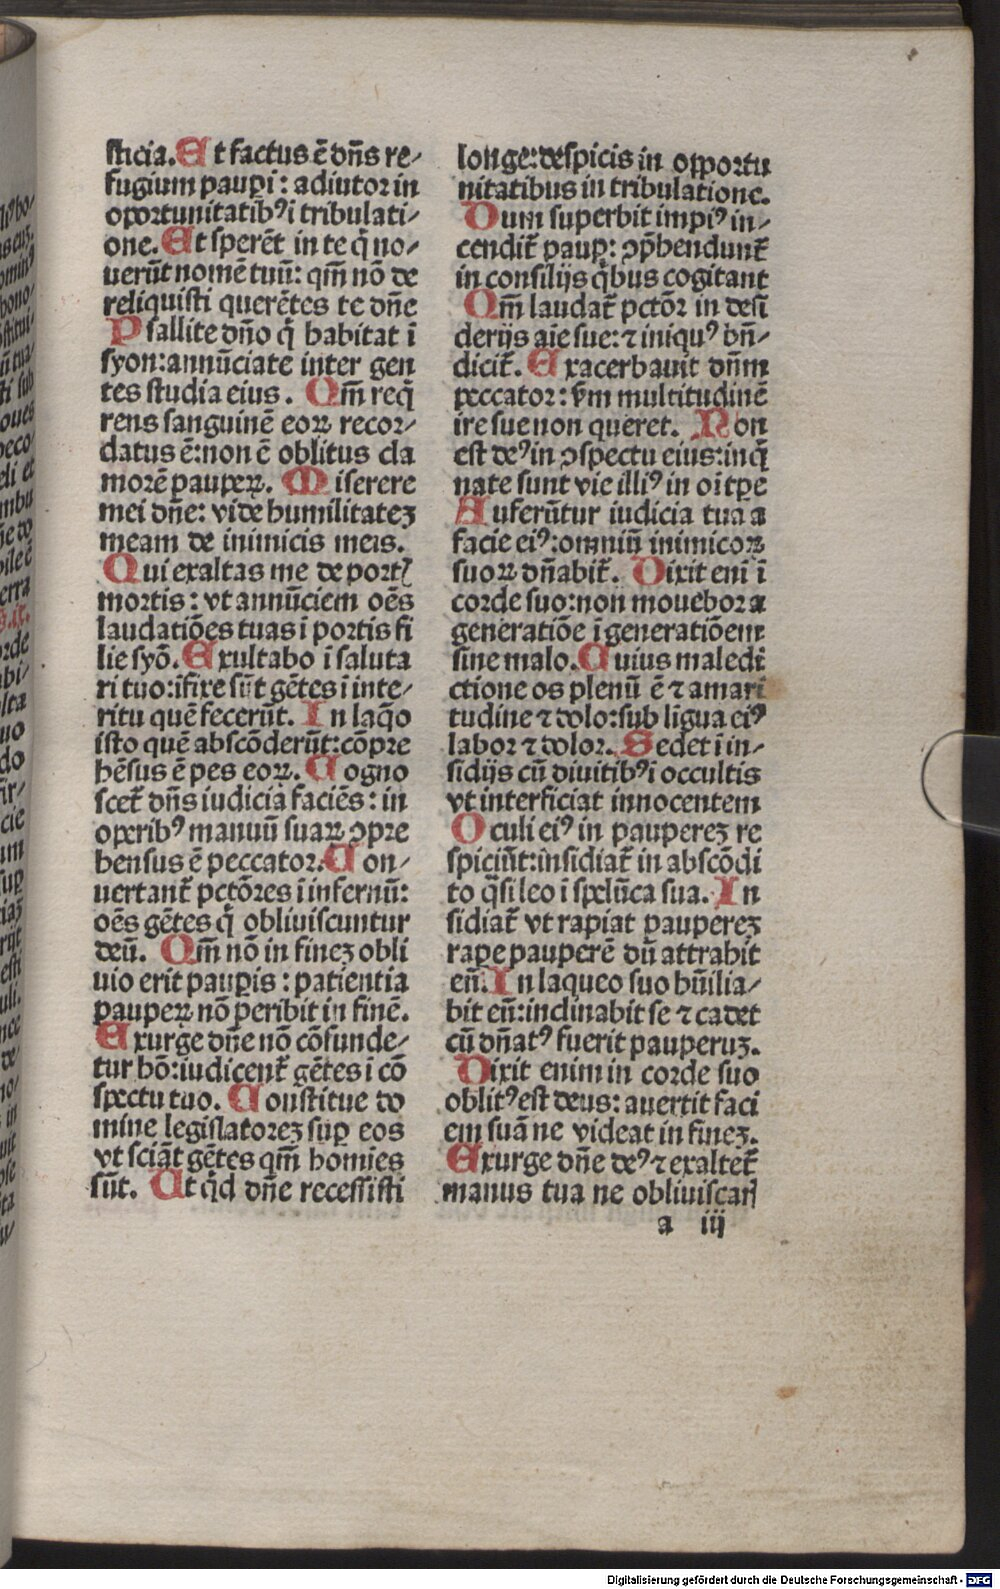 sticia. Et factus ē dn̄s re⸗
fugium pauꝑi: adiutor in
oportunitatibꝰ ī tribulati⸗
one. Et sperēt in te q̄ no⸗
uerūt nomē tuū: qm̄ nō de
reliquisti querētes te dn̄e
Psallite dn̄o q̄ habitat ī
syon: annūciate inter gen
tes studia eius. Qm̄ req̄
rens sanguinē eoꝝ recor⸗
datus ē: non ē oblitus cla
morē pauperꝝ. Miserere
mei dn̄e: vide humilitatez
meam de inimicis meis.
Qui exaltas me de portꝭ
mortis: vt annūciem oēs
laudatiōes tuas ī portis fi
lie syō. Exultabo ī saluta
ri tuo: īfixe sūt gētes ī inte⸗
ritu quē fecerūt. In laq̄o
isto quē abscōderūt: cōpre
hēsus ē pes eoꝝ. Cogno
scet̄ dn̄s iudicia faciēs: in
operibꝰ manuū suaꝝ ꝯpre
hensus ē peccator. Con⸗
uertant̄ pctōres ī infernū:
oēs gētes q̄ obliuiscuntur
deū. Qm̄ nō in finez obli
uio erit pauꝑis: patientia
pauperꝝ nō peribit in finē.
Exurge dn̄e nō cōfunde⸗
tur hō: iudicent̄ gētes ī cō
spectu tuo. Constitue do
mine legislatorez suꝑ eos
vt sciāt gētes qm̄ homies
sūt. Ut qͥd dn̄e recessisti
longe: despicis in opportu
nitatibus in tribulatione.
Dum superbit impiꝰ in⸗
cendit̄ pauꝑ: ꝯp̄hendunt̄
in consilijs qͥbus cogitant
Qm̄ laudat̄ pctōr in desi
derijs aīe sue: ⁊ iniquꝰ bn̄⸗
dicit̄. Exacerbauit dn̄m
peccator: ẜm multitudinē
ire sue non queret. Non
est deꝰ in ꝯspectu eius: inq̄
nate sunt vie illiꝰ in oī tp̄e
Auferūtur iudicia tua a
facie eiꝰ: omniū inimicoꝝ
suoꝝ dn̄abit̄. Dixit enī ī
corde suo: non mouebor a
generatiōe ī generatiōem
sine malo. Cuius maledi
ctione os plenū ē ⁊ amari
tudine ⁊ dolo: sub līgua eiꝰ
labor ⁊ dolor. Sedet ī in⸗
sidijs cū diuitibꝰ ī occultis
vt interficiat innocentem
Oculi eiꝰ in pauperez re
spiciūt: insidiat̄ in abscōdi
to q̄si leo ī spelūca sua. In
sidiat̄ vt rapiat pauperez
rape pauperē dū attrahit
eū. In laqueo suo hūilia⸗
bit eū: inclinabit se ⁊ cadet
cū dn̄atꝰ fuerit pauperuz.
Dixit enim in corde suo
oblitꝰ est deus: auertit faci
em suā ne videat in finez.
Exurge dn̄e deꝰ ⁊ exaltet̄
manus tua ne obliuiscarꝭ
a iij
Digitalisierung gefördert durch die Deutsche Forschungsgemeinschaft - DFG